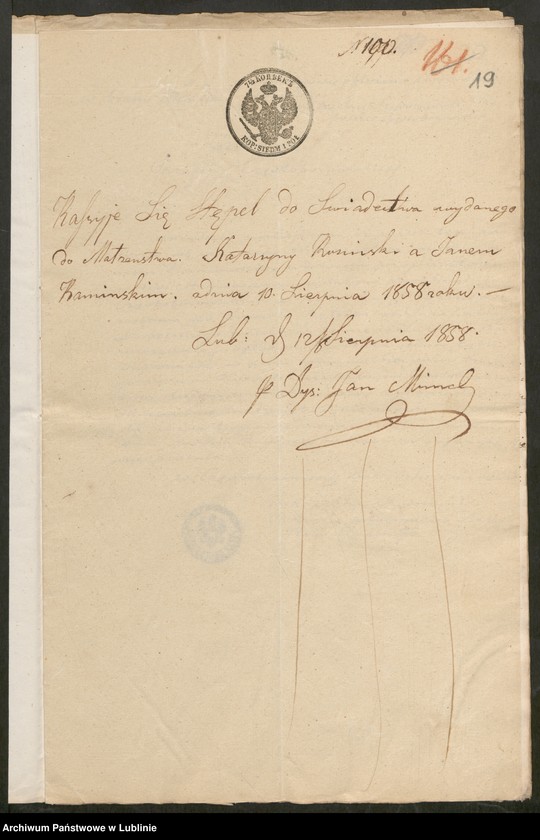 N 190.
161.
19
7½ КОПѢЕКЪ
KOP: SIEDM I POŁ
Kassuje Się Stępel do Swiadectwa wydanego
do Małzenstwa. Katarzyny Kominski a Janem
Kaminskim. a dnia 10. Sierpnia 1858 roku. —
Lub: d 12/ Sierpnia 1858.
Jan
Archiwum Państwowe w Lublinie